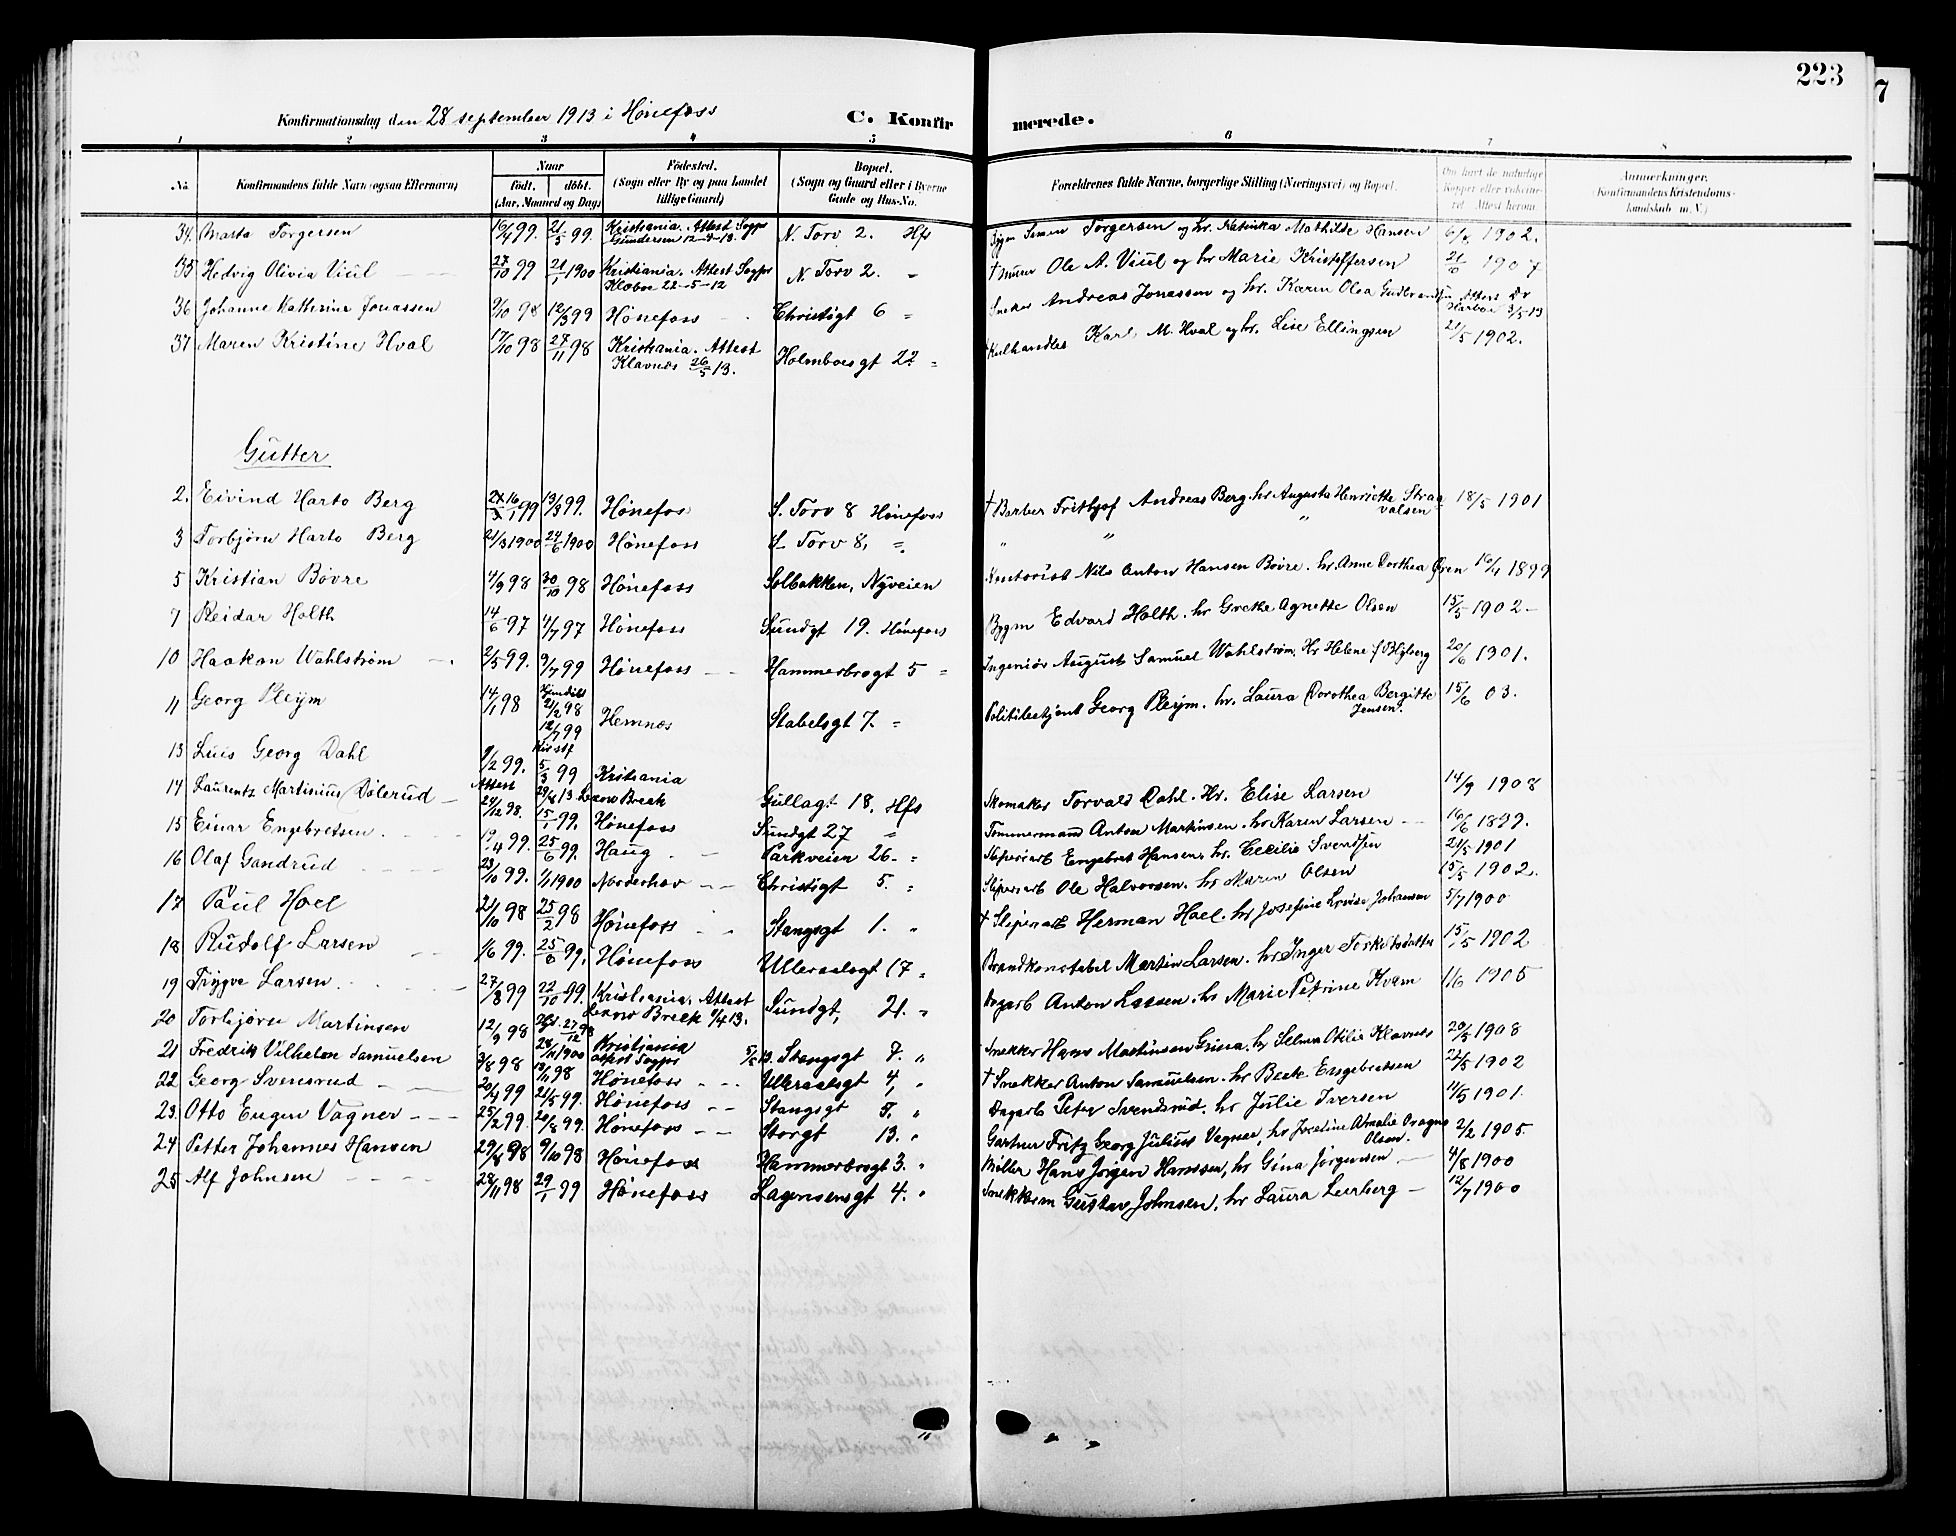 223
7
Konfirmationsdag den 28 september 1913 i Hønefoss C. Konfir merede.
1 2 3 4 5 6 7 8
No. Konfirmandens fulde Navn (ogsaa Efternavn)
Naar født. døbt. (Aar, Maaned og Dag)
Fødested. (Sogn eller By og paa Landet tillige Gaard)
Bopæl. (Sogn og Gaard eller i Byerne Gade og Hus-No.
Forældrenes fulde Navne, borgerlige Stilling (Næringsvei) og Bopæl.
Om havt de naturlige Kopper eller vaksineret. Attest herom.
Anmerkninger. Konfirmandens Kristendomskundskab m. V.)
34. Marta Torgersen 16/4 99. 21/5 99. Kristiania. Attest Sogpr Gundersen 12-9-13. N. Torv 2. Hfs Simen Torgersen og hr. Katinka Mathilde Hansen 6/8 1902.
35 Hedvig Olivia Viul 27/10 99 21/1 1900 Kristiania. Attest Sogpr Klæboe 22-5-12 N. Torv 2. " † murer Ole A. Viul og hr Marie Kristoffersen 21/10 1907
36 Johanne Kathrine Jonassen 9/10 98 12/3 99 Hønefoss Christigt 6 " Snekker Andreas Jonassen og hr. Karen Olea Gulbrandsen Attest Dr Harboe 3/5 13
37 Maren Kristine Hval 17/10 98 27/11 98 Kristiania. Attest Klavnæs 26/5 13. Holmboesgt 22 " Kulhandler Karl M. Hval og hr. Lise Ellingsen 21/5 1902.
Gutter
2. Eivind Harto Berg 16/1 99 13/3 99. Hønefos S. Torv 8 Hønefoss † Barber Frithjof Andreas Berg. hr Augusta Henriette 18/5 1901
3 Torbjørn Harto Berg 21/3 1900 24/6 1900 Hønefoss S. Torv 8, " " " "
5 Kristian Bøvre 4/9 98 30/10 98 Hønefoss Solbakken, Nyveien Kontorist Nils Anton Hansen Bøvre. hr. Anne Dorthea Øren 16/4 1899
7 Reidar Holth 14/6 97 4/7 97 Hønefoss Sundgt 19. Hønefoss Bygm Edvard Holth. hr Grethe Agnette Olsen 15/5 1902
10 Haakon Wahlstrøm 2/5 99. 9/7 99 Hønefoss Hammerbrogt 5 " Ingeniør August Samuel Wahlstrøm. Hr Helene f. Myberg 20/6 1901.
11 Georg Pleym 14/1 98 Hjemdøbt 21/2 98 12/7 99 Hemnes Stabelsgt 7. " Politibetjent Georg Pleym. hr. Laura Dorothea Bergitte Jensen. 15/6 03.
13 Luis Georg Dahl 9/2 99. 5/3 99 Kristiania Attest 29/8 13 Leano Breek Gullagt 18. Hfs Skomaker Torvald Dahl. Hr. Elise Larsen 14/9 1908
14 Laurentz Martinius Dølerud 24/12 98. 15/1 99. Hønefoss Sundgt 27 " Tømmermand Anton Martinsen. hr Karen Larsen 16/6 1899.
15 Einar Engebretsen 19/4 99. 25/6 99. Haug Parkveien 26. " Sliperiarb Engebret Hansen. hr. Cecilie Svendsen 21/5 1901
16 Olaf Gandrud 23/10 99. 1/1 1900 Norderhov Christigt 5. " Sliperiarb Ole Halvorsen. hr Maren Olsen 15/5 1902.
17 Paul Hoel 21/10 98 25/2 98 Hønefoss Stangsgt 1. " † Sliperiarb Herman Hoel. hr Josefine Lovise Johansen 5/7 1900
18 Rudolf Larsen 1/6 99. 25/8 99. Hønefoss Ulleraalsgt 17 " Brandkonstabel Martin Larsen. hr Inger Torkelsdatter 15/5 1902
19 Trygve Larsen 27/8 99 22/10 99. Kristiania. Attest Leano Breek 9/4 13. Sundgt, 21. " Dagarb Anton Larsen. hr Marie Petrine Kvam 1/6 1905
20 Torbjørn Martinsen 12/9 98 27/12 98 28/11 1900 Kristiania attest Sogpr 5/5 13. Stangsgt 7. " Snekker Hans Martinsen Grina. hr Selma Otilie Klavnæs 20/5 1908
21 Fredrik Vilhelm Samuelsen 3/8 98 13/11 98 Hønefoss Ulleraalsgt 4, " † Snekker Anton Samuelsen. hr Beate Engebretsen 22/5 1902
22 Georg Svensrud 20/4 99 21/5 99. Hønefoss Stangsgt 5. " Dagarb Peter Svendsrud. hr Julie Iversen 11/5 1901.
23. Otto Eugen Vagner 25/2 99. 20/8 99. Hønefoss Storgt 13. " Gartner Fritz Georg Julius Vagner, hr Josefine Amalie Olsen. 2/2 1905.
24 Petter Johannes Hansen 29/8 98 9/10 98 Hønefoss Hammerbrogt 3. " Møller Hans Jørgen Hanssen, hr Gina Jørgensen 4/8 1900
25 Alf Johnsen 28/11 98 29/1 99 Hønefoss Lagesensgt 4. " Snekkerm Gustav Johnsen, hr Laura Leerberg 12/7 1900